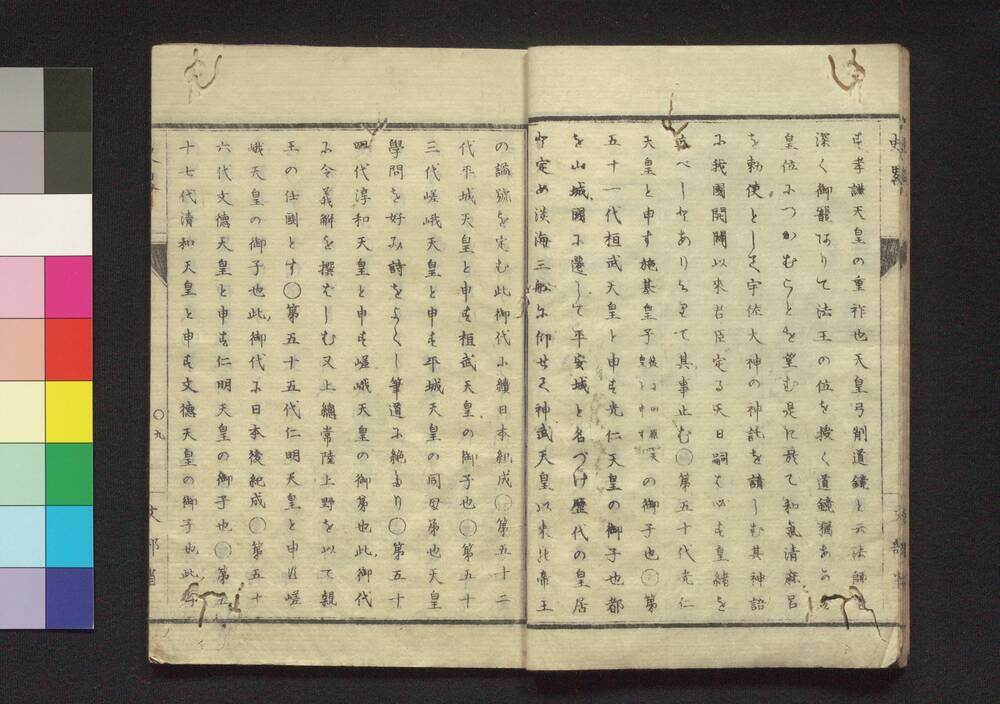 す孝謙天皇の重祚也天皇弓削道鏡と云法師を
深く御寵ありて法王の位を授く道鏡猶あらず
皇位につかむことを望む是に於て和氣清麻呂
を勅使として宇佐大神の神託を請しむ其神語
に我國開闢以來君臣定る天日嗣はかならず皇緒を
立べしとありて其事止む○第五十代光仁
天皇と申す施基皇子の御子也○第
五十一代桓武天皇と申す光仁天皇の御子也都
を山城國に遷して平安城と名づけ歴代の皇居
と定め淡海三船に仰せて神武天皇以來の帝王
の謚號を定む此御代に續日本紀成○第五十二
代平城天皇と申す桓武天皇の御子也○第五十
三代嵯峨天皇と申す平城天皇の同母弟也天皇
學問を好み詩をよくし筆道に絶たり○第五十
四代淳和天皇と申す嵯峨天皇の御弟也此御代
に令義解を撰ばしむ又上總常陸上野を以て親
王の任國とす○第五十五代仁明天皇と申す嵯
峨天皇の御子也此御代に日本後紀成○第五十
六代文德天皇と申す仁明天皇の御子也○第五
十七代清和天皇と申す文德天皇の御子也此
○九
文部省